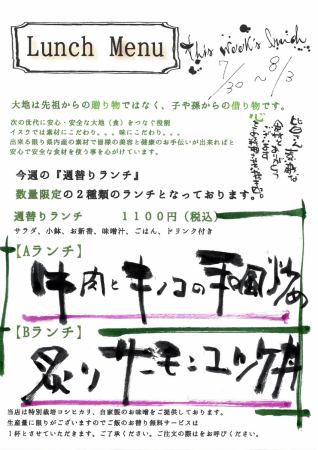 Lunch Menu
this week's lunch
7/30 ～ 8/3
大地は先祖からの贈り物ではなく、子や孫からの借り物です。
次の世代に安心・安全な大地（食）をつなぐ役割
イスクでは素材にこだわり。。。味にこだわり。。。
出来る限り県内産の素材で皆様の美容と健康のお手伝いが出来ればと
安心で安全な食材を使う事を心がけています。
今週の『週替りランチ』
数量限定の２種類のランチとなっております。
週替りランチ　１１００円（税込）
サラダ、小鉢、お新香、味噌汁、ごはん、ドリンク付き
【Aランチ】
牛肉とキノコの和風炒め
【Bランチ】
炙りサーモンユッケ丼
当店は特別栽培コシヒカリ、自家製のお味噌をご提供しております。
生産量に限りがございますのでご飯のお替り無料サービスは
１杯とさせていただきます。ご了承ください。ご注文の際はをお呼びください。